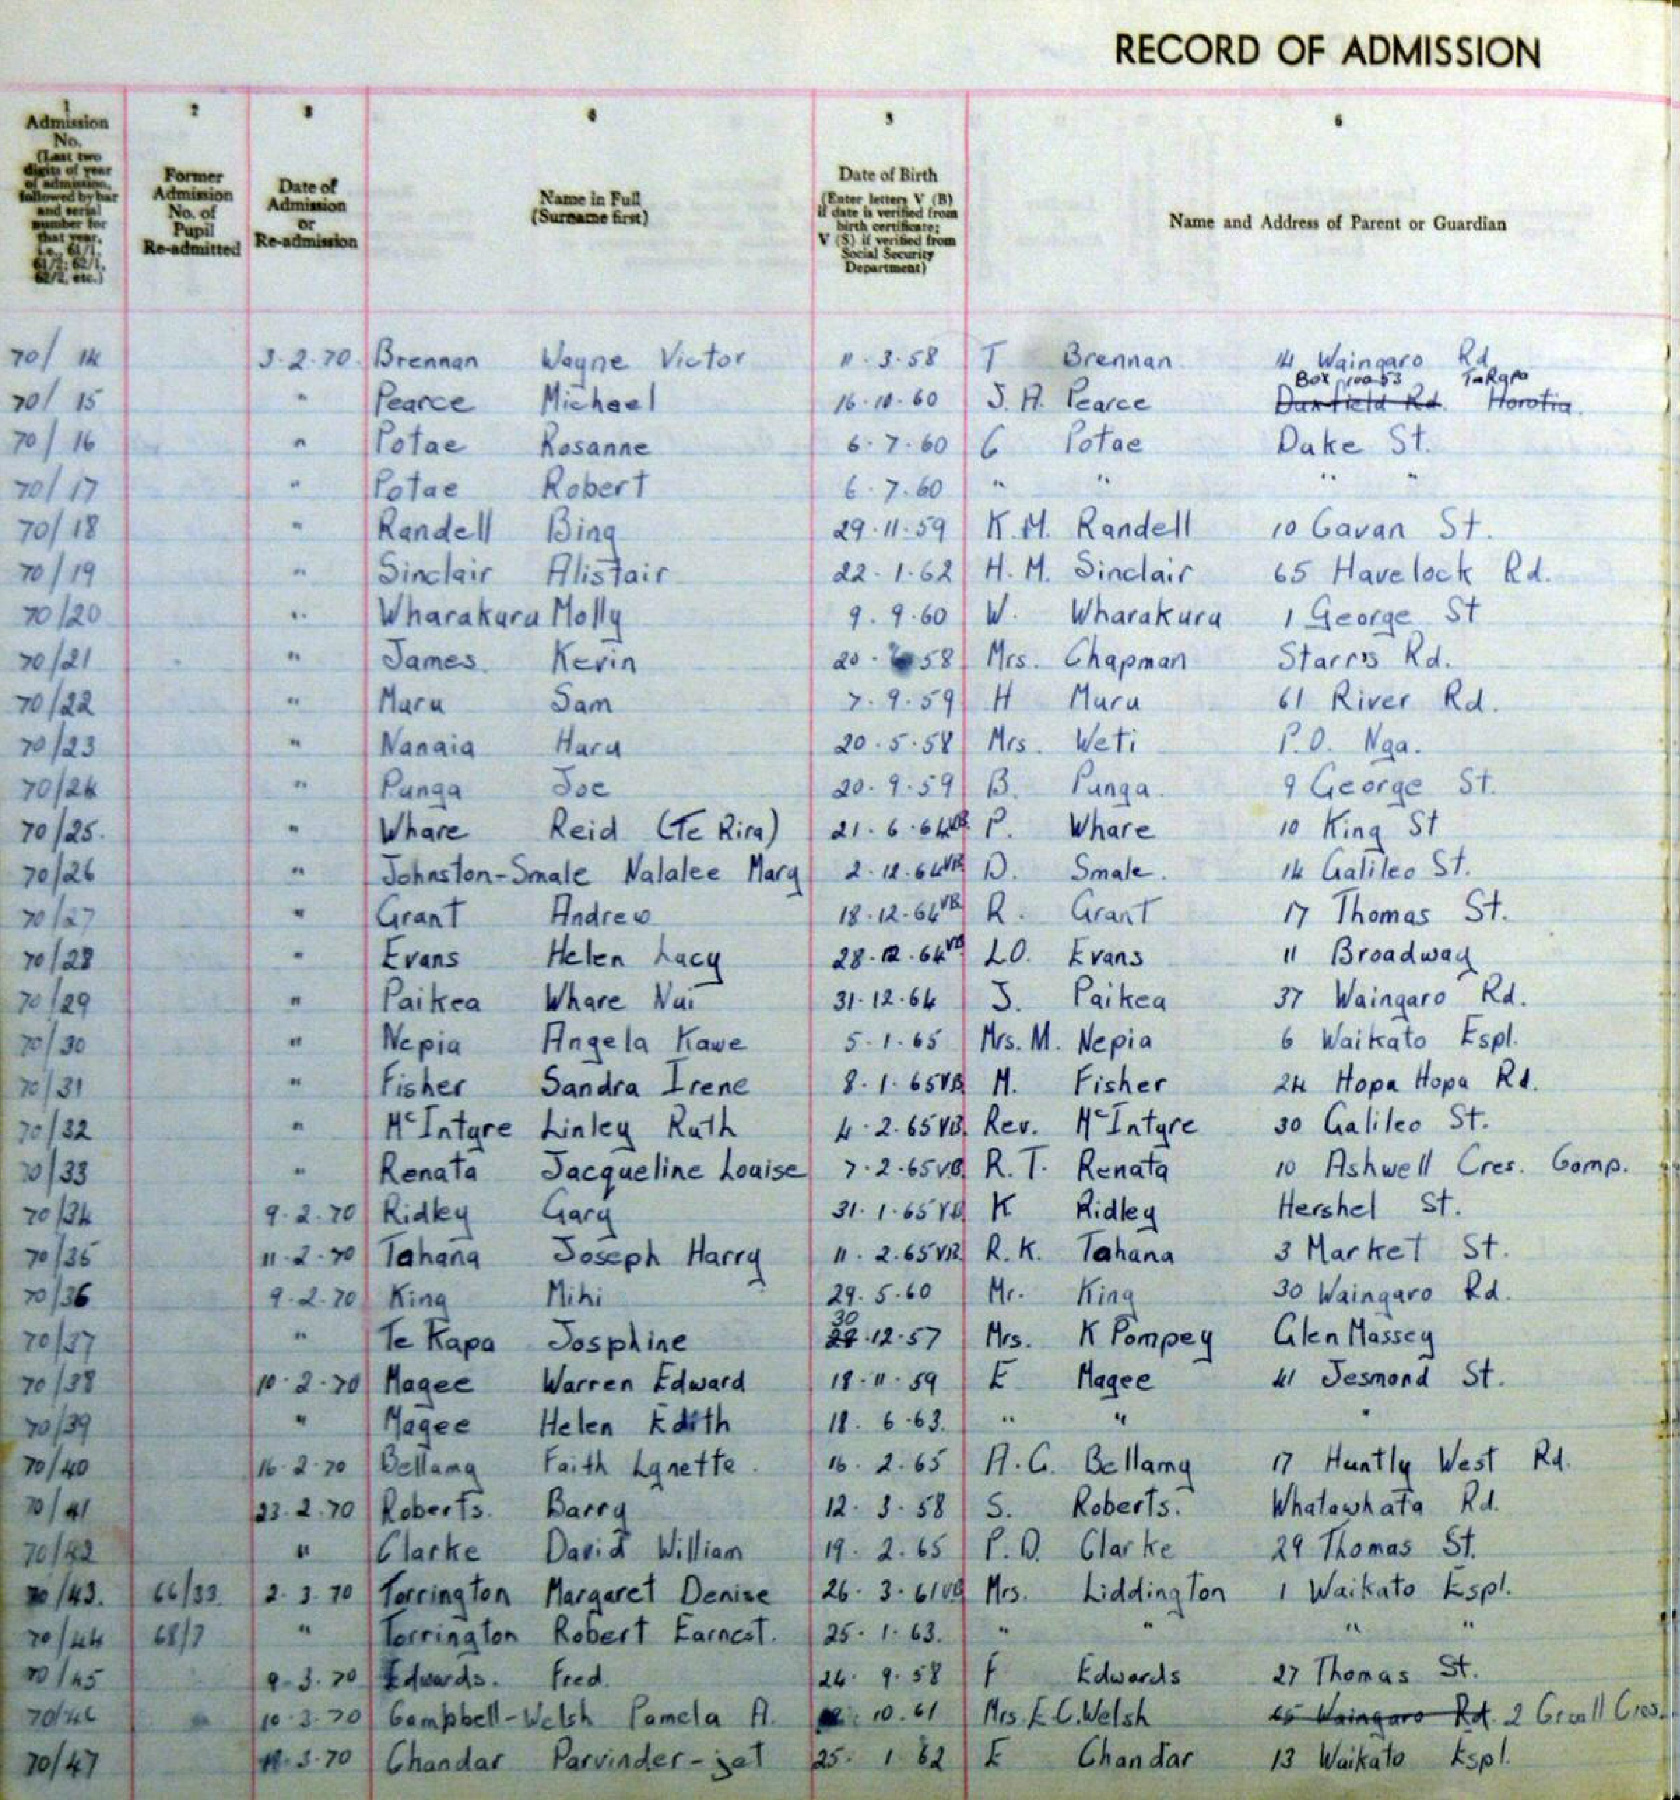 RECORD OF ADMISSION
1 2 3 4 5 6
Admission No. (Last two digits of year of admission, followed by bar and serial number for that year, i.e., 61/1, 61/2; 62/1, 62/2, etc.)
Former Admission No. of Pupil Re-admitted
Date of Admission or Re-admission
Name in Full (Surname first)
Date of Birth (Enter letters V (B) if date is verified from birth certificate; V (S) if verified from Social Security Department)
Name and Address of Parent or Guardian
70/14 3.2.70 Brennan Wayne Victor 11.3.58 T Brennan 14 Waingaro Rd
Box 10053 TaKapa
70/15 " Pearce Michael 16.10.60 J.A. Pearce Duxfield Rd. Horotiu
70/16 " Potae Rosanne 6.7.60 G Potae Duke St.
70/17 " Potae Robert 6.7.60 " " " "
70/18 " Randell Bing 29.11.59 K.M. Randell 10 Gavan St.
70/19 " Sinclair Alistair 22.1.62 H.M. Sinclair 65 Havelock Rd.
70/20 " Wharakura Molly 9.9.60 W. Wharakura 1 George St
70/21 " James Kevin 20. 58 Mrs. Chapman Starr's Rd.
70/22 " Muru Sam 7.9.59 H Muru 61 River Rd.
70/23 " Nanaia Huru 20.5.58 Mrs. Weti P.O. Nga.
70/24 " Punga Joe 20.9.59 B. Punga 9 George St.
70/25. " Whare Reid (Te Rira) 21.6.64VB P. Whare 10 King St
70/26 " Johnston-Smale Nalalee Mary 2.12.64VB D. Smale. 14 Galileo St.
70/27 " Grant Andrew 18.12.64VB R. Grant 17 Thomas St.
70/28 " Evans Helen Lucy 28.12.64VB L.O. Evans 11 Broadway
70/29 " Paikea Whare Nui 31.12.64 J. Paikea 37 Waingaro Rd.
70/30 " Nepia Angela Kawe 5.1.65 Mrs. M. Nepia 6 Waikato Espl.
70/31 " Fisher Sandra Irene 8.1.65VB M. Fisher 24 Hopa Hopa Rd.
70/32 " McIntyre Linley Ruth 4.2.65VB Rev. McIntyre 30 Galileo St.
70/33 " Renata Jacqueline Louise 7.2.65VB R.T. Renata 10 Ashwell Cres. Comp.
70/34 9.2.70 Ridley Gary 31.1.65VB K Ridley Hershel St.
70/35 11.2.70 Tahana Joseph Harry 11.2.65VB R.K. Tahana 3 Market St.
70/36 9.2.70 King Mihi 29.5.60 Mr. King 30 Waingaro Rd.
30
70/37 " Te Kapa Josphine .12.57 Mrs. K Pompey Glen Massey
70/38 10.2.70 Magee Warren Edward 18.11.59 E Magee 41 Jesmond St.
70/39 " Magee Helen Edith 18.6.63. " " "
70/40 16.2.70 Bellamy Faith Lynette. 16.2.65 A.C. Bellamy 17 Huntly West Rd.
70/41 23.2.70 Roberts. Barry 12.3.58 S. Roberts. Whatawhata Rd.
70/42 " Clarke David William 19.2.65 P.D. Clarke 29 Thomas St.
70/43. 66/33. 2.3.70 Torrington Margaret Denise 26.3.61VB Mrs. Liddington 1 Waikato Espl.
70/44 68/7 " Torrington Robert Earnest. 25.1.63. " " " "
70/45 9.3.70 Edwards. Fred. 24.9.58 F Edwards 27 Thomas St.
70/46 10.3.70 Campbell-Welsh Pamela A. 10.61 Mrs. E.C. Welsh 65 Waingaro Rd. 2 Cres.
70/47 3.70 Chandar Parvinder-jet 25.1.62 E Chandar 13 Waikato Espl.